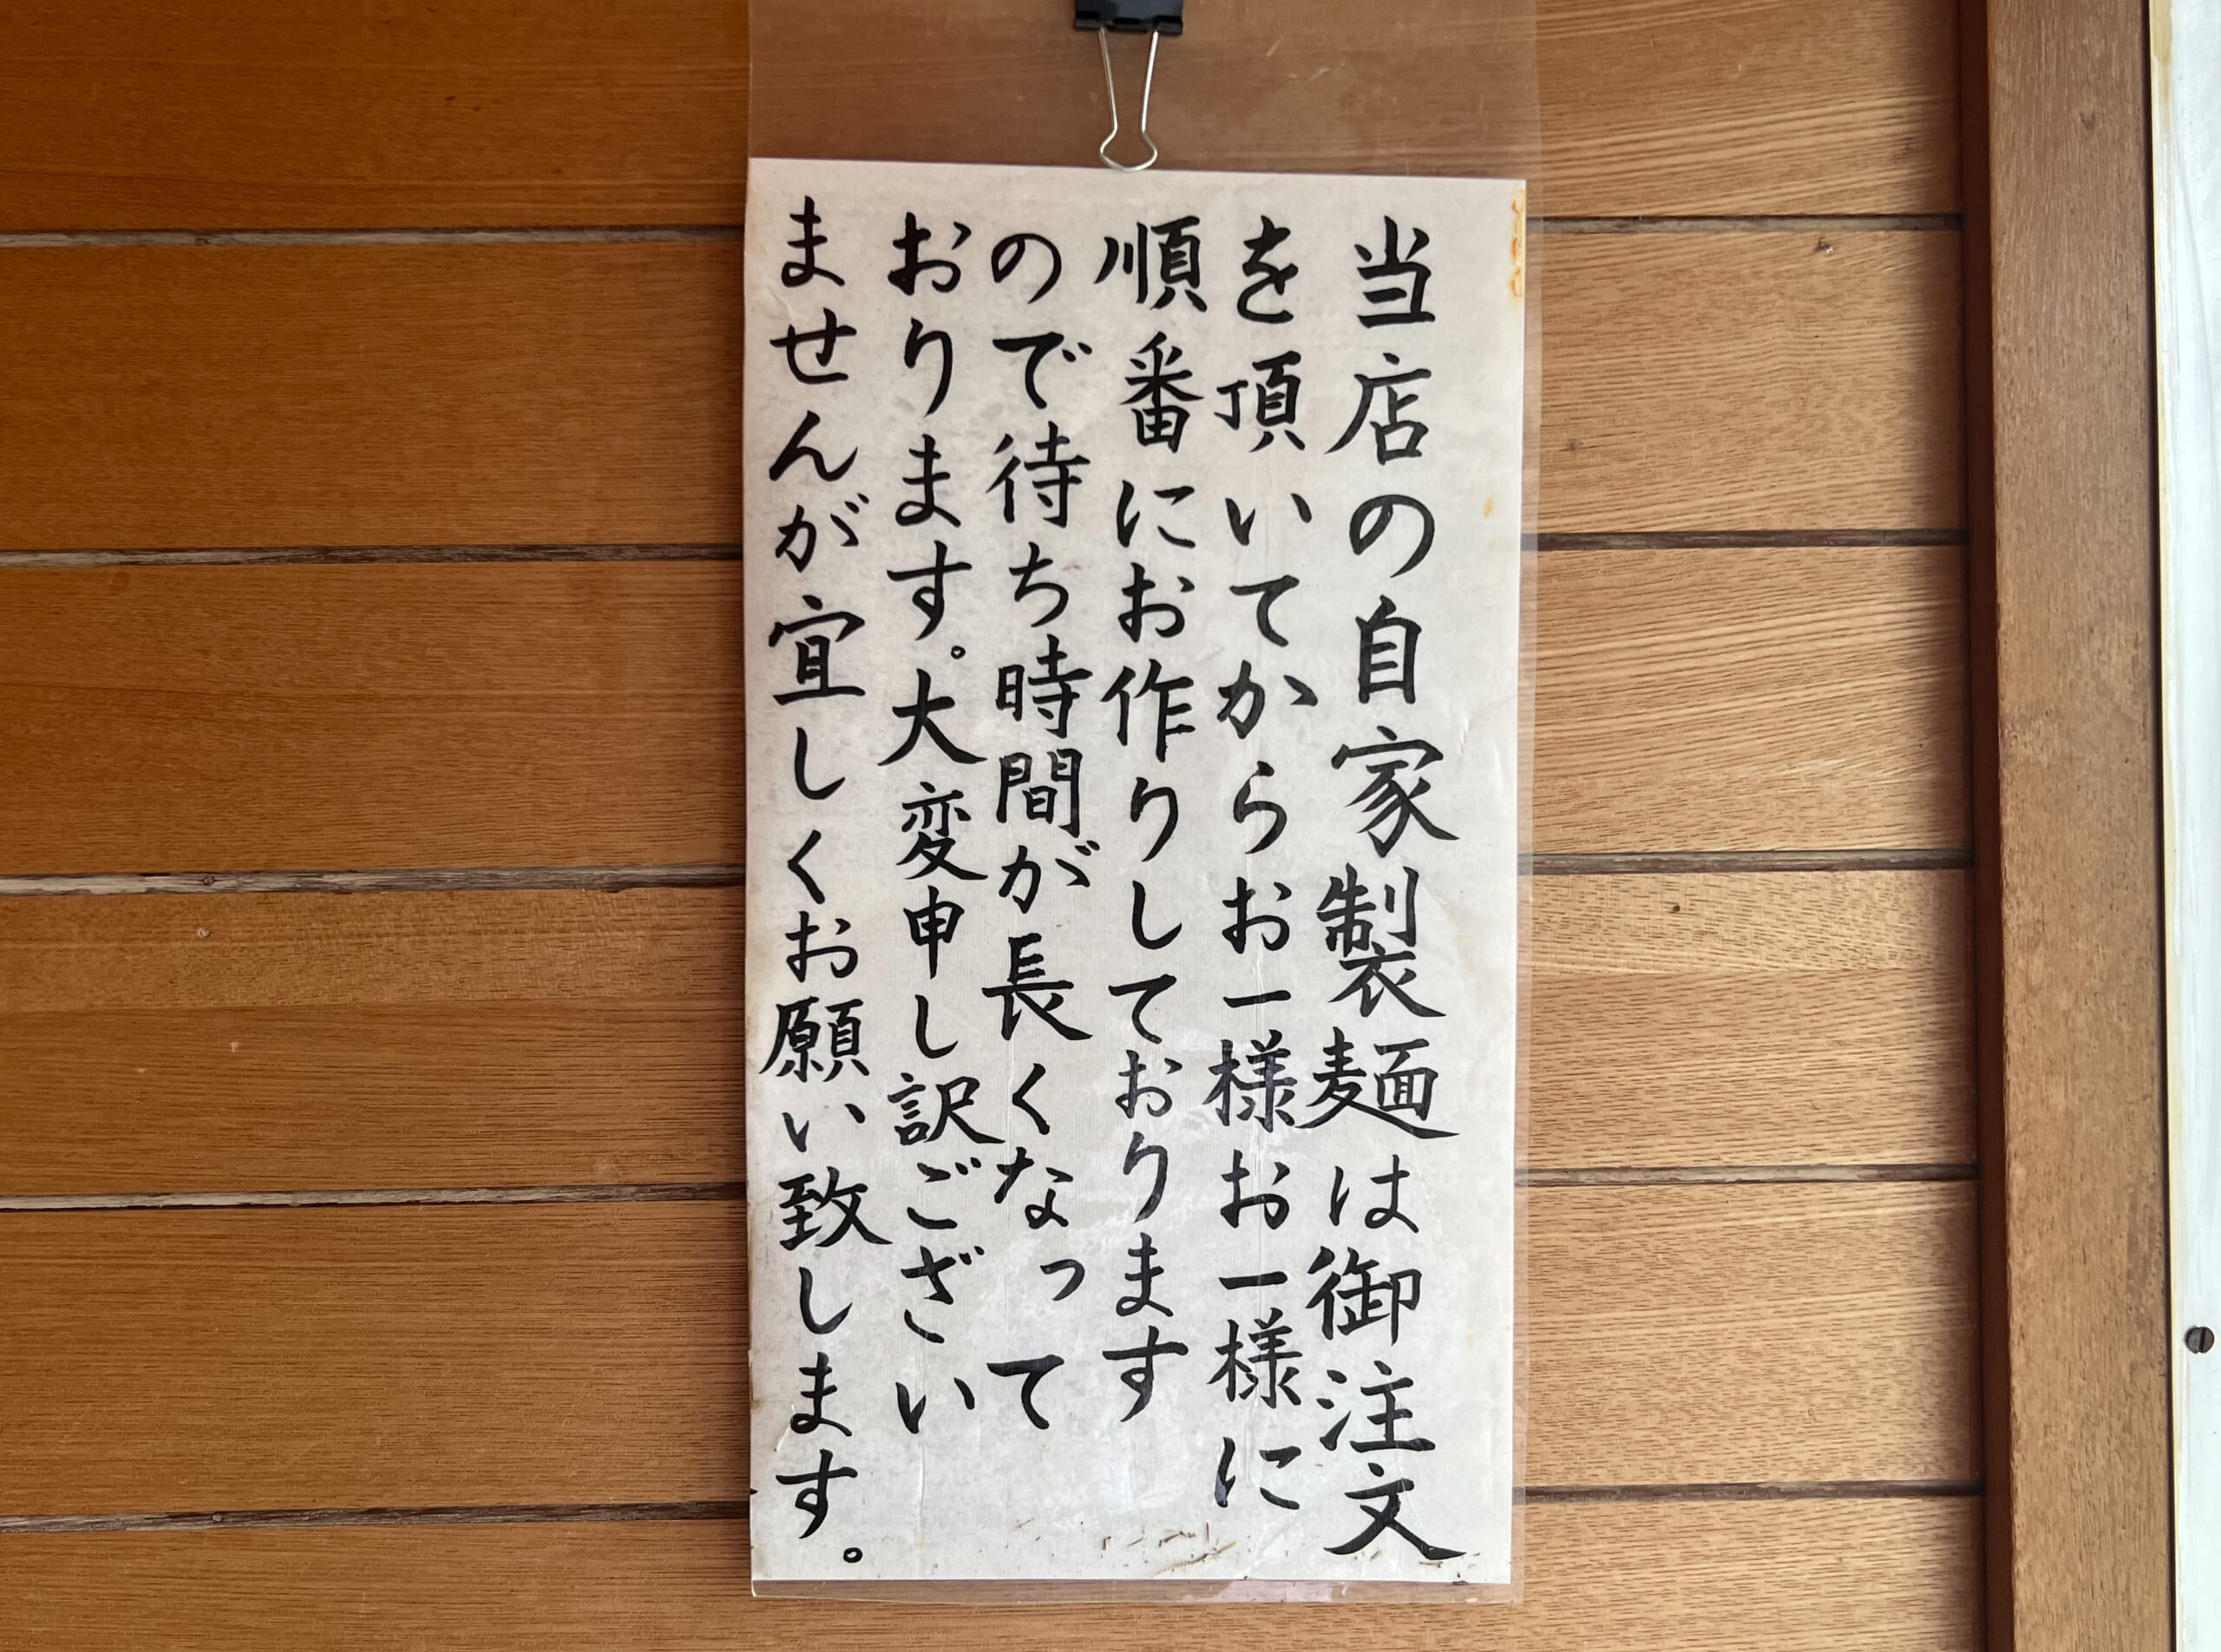 当店の自家製麺は御注文
を頂いてからお一様お一様に
順番にお作りしております
ので待ち時間が長くなって
おります。大変申し訳ござい
ませんが宜しくお願い致します。